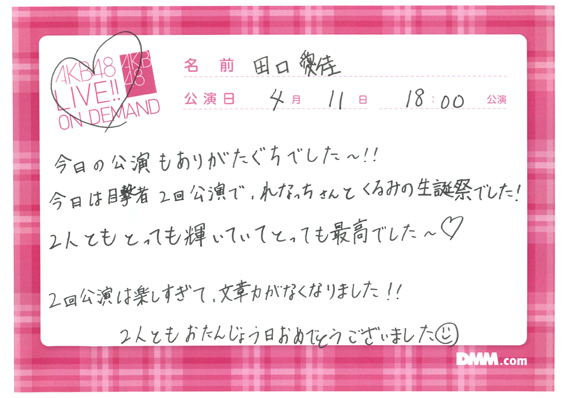 AKB48
LIVE!!
ON DEMAND
AKB
48
名前 田口愛佳
公演日 4月 11日 18:00 公演
今日の公演もありがたぐちでした〜!!
今日は目撃者2回公演で、れなっちさんとくるみの生誕祭でした!
2人ともとっても輝いていてとっても最高でした〜♡
2回公演は楽しすぎて、文章力がなくなりました!!
2人ともおたんじょう日おめでとうございました☺
DMM.com